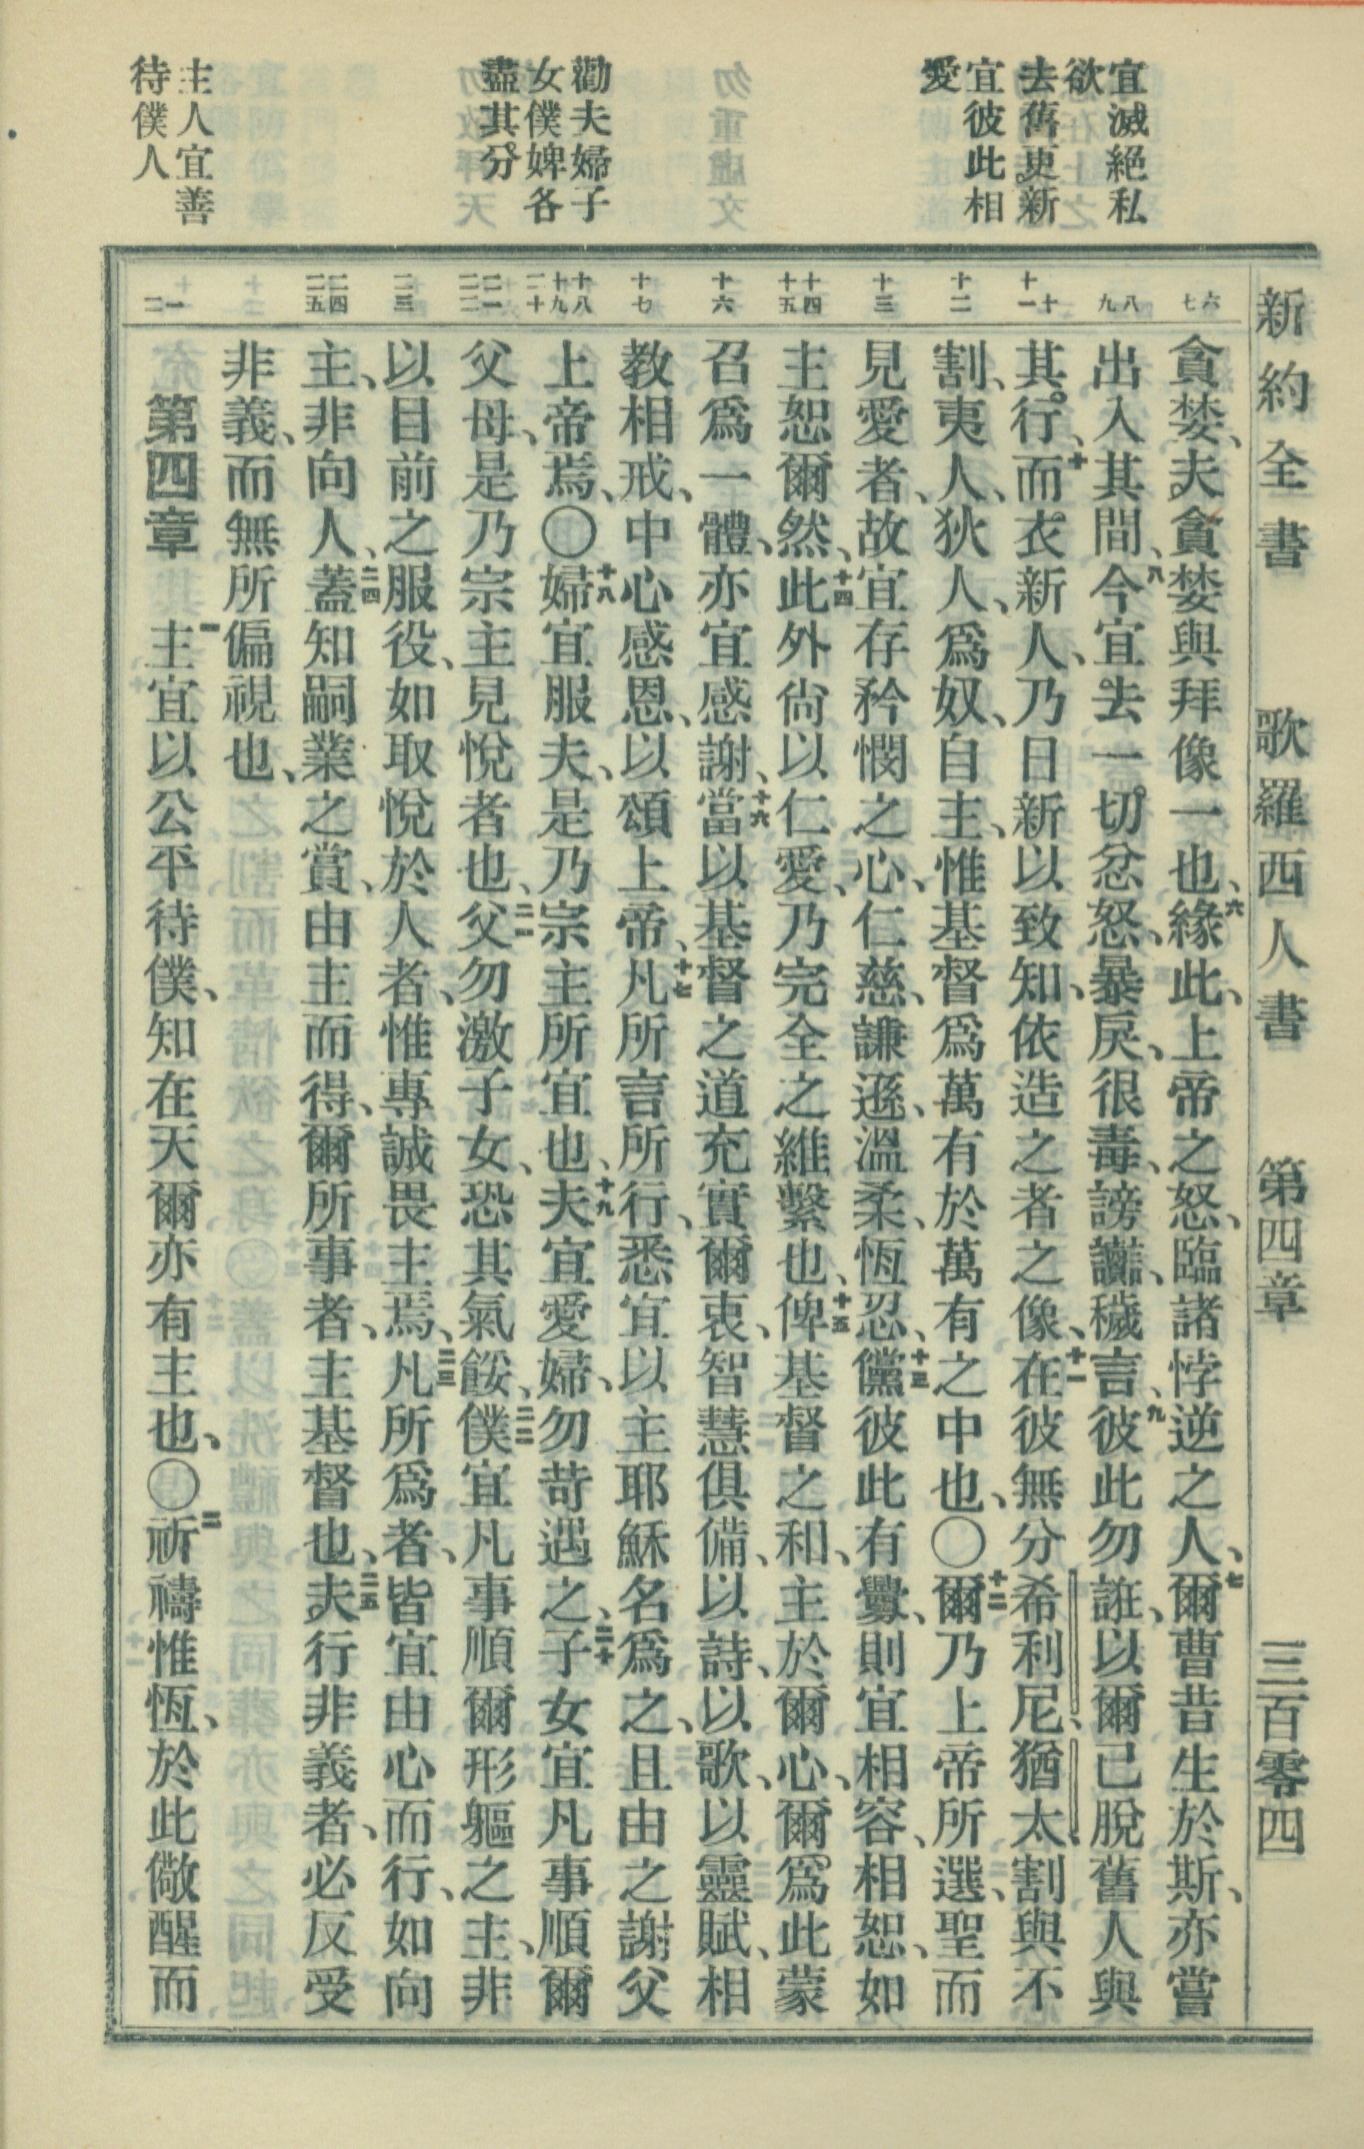 宜滅絕私
欲
去舊更新
宜彼此相
愛
勸夫婦子
女僕婢各
盡其分
主人宜善
待僕人
新約全書 歌羅西人書 第四章 三百零四
六 七
八 九
十 十一
十二
十三
十四 十五
十六
十七
十八 十九 二十
二一 二二
二三
二四 二五
一 二
貪婪、夫貪婪與拜像一也、六緣此、上帝之怒、臨諸悖逆之人、七爾曹昔生於斯、亦嘗
出入其間、八今宜去一切忿怒、暴戾、很毒、謗讟、穢言、九彼此勿誑、以爾已脫舊人與
其行、十而衣新人、乃日新以致知、依造之者之像、十一在彼無分希利尼、猶太、割與不
割、夷人、狄人、爲奴、自主、惟基督爲萬有於萬有之中也、〇十二爾乃上帝所選、聖而
見愛者、故宜存矜憫之心、仁慈、謙遜、溫柔、恆忍、十三儻彼此有釁、則宜相容、相恕、如
主恕爾然、十四此外尙以仁愛、乃完全之維繫也、十五俾基督之和、主於爾心、爾爲此蒙
召爲一體、亦宜感謝、十六當以基督之道充實爾衷、智慧俱備、以詩、以歌、以靈賦、相
教相戒、中心感恩、以頌上帝、十七凡所言所行、悉宜以主耶穌名爲之、且由之謝父
上帝焉、〇十八婦宜服夫、是乃宗主所宜也、十九夫宜愛婦、勿苛遇之、二十子女宜凡事順爾
父母、是乃宗主見悅者也、二一父勿激子女、恐其氣餒、二二僕宜凡事順爾形軀之主、非
以目前之服役、如取悅於人者、惟專誠畏主焉、二三凡所爲者、皆宜由心而行、如向
主、非向人、二四蓋知嗣業之賞、由主而得、爾所事者、主基督也、二五夫行非義者、必反受
非義、而無所偏視也、
第四章 一主宜以公平待僕、知在天爾亦有主也、〇二祈禱惟恆、於此儆醒而